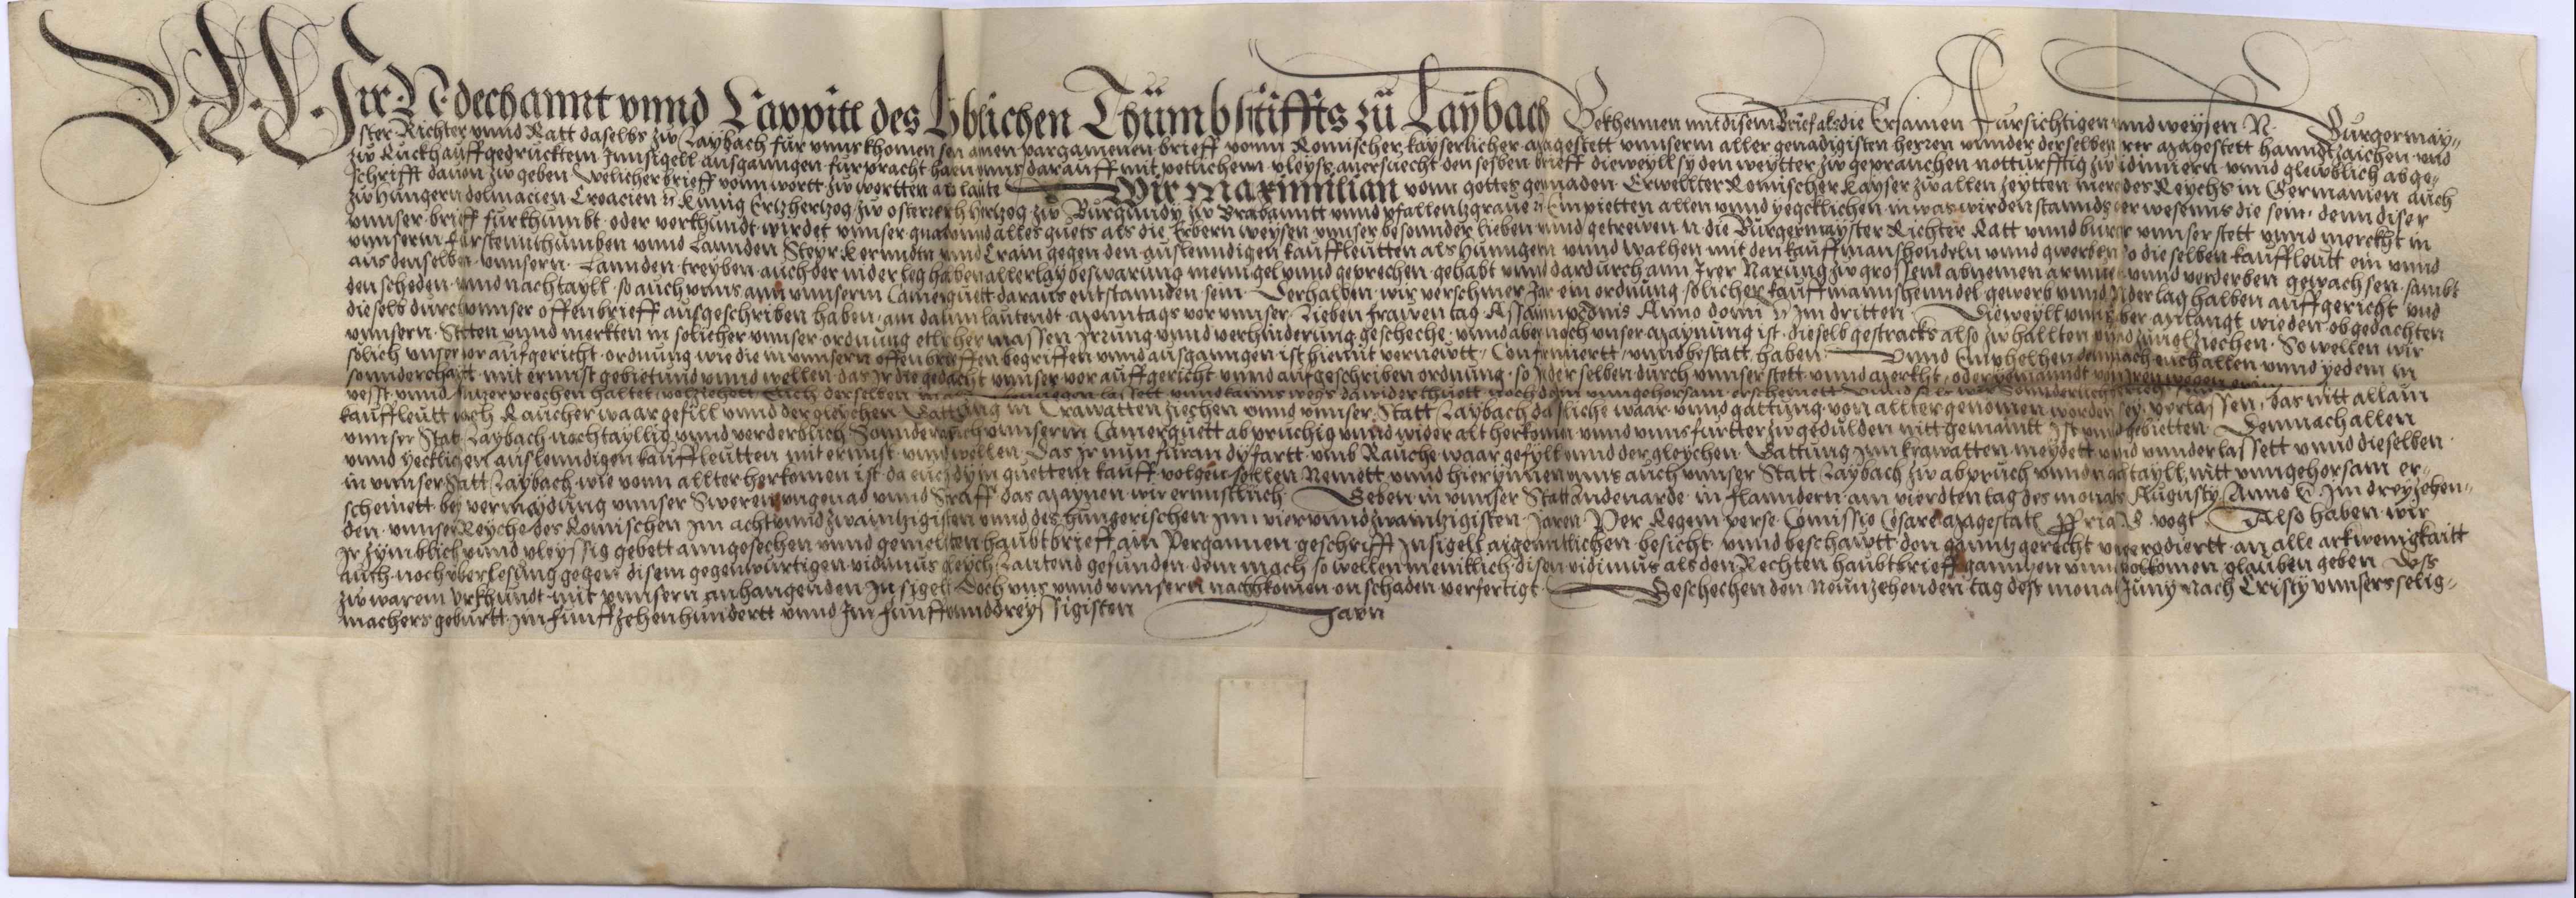 Wir N dechannt vnnd Cappitl des löblichen Thümbstiffts zü Laÿbach Bekhennen mit disem Brief als die Ersamen Fürsichtigen vnnd weÿsen N. Bürgermaÿ=
ster Richter vnnd Ratt daselbs zw Laÿbach für vnns khomen sein ainen pargamenen brieff vonn Römischer kaÿserlicher Magestett vnnserm aller genadigisten herren vnnder derselben irer Magestett hanndtzaichen vnd
zw Ruckhauff gedrucktem Innsigell ausganngen fürpracht haben vnns darauff mit petlichem vleÿss anersuecht den selben brieff dieweÿll sÿ den weÿtter zw geprauchen notturfftig zw vidimiern vnnd glewblich abge=
schrifft dauon zw geben welicher brieff vonn wortt zw wortten also laüt Wir Maximilian vonn gottes genaden Erwellter Römischer Kaÿser zw allen zeÿtten merer des Reÿchs in Germanien auch
zw Hüngern dolmacien Croacien &c Künig Ertzhertzog zw osterreich hertzog zw Bürgundÿ zw Brabannt vnnd pfallentzgraue &c Empietten allen vnnd ÿegcklichen in was wirden stannds oder wesenns die sein denn diser
vnnser brieff fürkhumbt oder verkhundt wirdet vnnser gnad vnnd alles guets als die Erbern weÿsen vnnser besonnder lieben vnnd getrewen N die Bürgermaÿster Richter Ratt vnnd burger vnnser stett vnnd merckht in
vnnserm fürstennthumben vnnd Lannden Steÿr kernndtn vnnd Crain gegen den auslenndigen kauffleütten als Hünngern vnnd walhen mit den kauffmanshendeln vnnd gwerben so dieselben kauffleütt ein vnnd
aus denselben vnnsern Lannden treÿben auch der niderleg haben allerlaÿ beswarung menngel vnnd gebrechen gehabt vnnd dardurch ann Irer Narung zw grossem abnemen armuet vnnd verderben gewachsen sambt
den scheden vnnd nachtaÿll so auch vnns ann vnnserm Camerguett daraus entstannden sein Derhalben wir verschiner Jar ein ordnung solicher kauffmannshenndel gewerb vnnd Niderlag halben auffgericht vnd
dieselb durch vnnser offen brieff ausgeschriben haben am datum lautendt Monntags vor vnnser Lieben frawen tag Assumpcionis Anno domini &c Im dritten Dieweÿll vnns aber anlangt wie den obgedachten
vnnsern Stetten vnnd merkten in solicher vnnser ordnung etlicher massen Irrung vnnd verhinderung geschehe vnnd aber noch vnser Maÿnung ist dieselb gestracks also zw hallten vnnd zw uolziechen So wellen wir
solich vnser vor aufgericht ordnung wie die in vnnsern offen brieffen begriffen vnnd ausganngen ist hiemit vernewtt Confirmiertt vnnd bestatt haben Vnnd Emphelhen demnach euch allen vnnd ÿedem in
sonnderhait mit ernnst gebietund vnnd wellen das Ir die gedacht vnnser vor auffgericht vnnd ausgeschriben ordnung so Ir derselben durch vnnser stett vnnd Merkht oder ÿemanndt von Iren wegen
vesst vnnd vnzerprochen haltet volziehett Euch derselben lassett vnnd kains wegs dawider thuett noch dem vnngehorsam erscheinett vnnd
kauffleütt nach Raucher waar gefill vnnd dergleÿchen Gattung in Crawatten ziechen vnnd vnnser Statt Laÿbach da soliche waar vnnd gattung von allter genomen worden seÿ verlassen das nitt allain
vnnser Stat Laÿbach nochtaÿllig vnnd verderblich Sonnder auch vnnserm Camerguett abpruchig vnnd wider alt herkomen vnnd vnns furtter zw gedulden nitt gemaint Ist vnnd gebietten Demnach allen
vnnd ÿecklichen auslenndigen kauffleutten mit ernnst vnnd wellen Das Ir nun füran dÿ fartt vmb Rauche waar gefyll vnnd dergleÿchen Gattung inn krawatten meÿdett vnnd vnnderlassett vnnd dieselben
in vnnser Statt Laÿbach wie vonn allter herkomen ist da euch dÿ in guettem kauff volgen sollen Nemett vnnd hierÿnnen vnns auch vnnser Statt Laÿbach zw abpruch vnnd nachtaÿll nitt vnngehorsam er=
scheinett beÿ vermeÿdung vnnser Sweren vngenad vnnd Straff das Maÿnen wir ernnstlich Geben in vnnser Statt Andenarde in flanndern am vierdten tag des monats Augusty Anno &c Im dreÿzehen=
den vnnser Reÿche des Römischen im acht vnnd zwaintzigisten vnnd des hüngerischen im vier vnnd zwaintzigisten Jaren Per Regem per se Comissio Cesaree Magestatis ppria V vogt Also haben wir
Ir zÿmblich vnnd vleÿssig gebett anngesechen vnnd gemelten haubtbrieff am Pergamen geschrifft Insigell aigenntlichen besicht vnnd beschawtt den ganntz gerecht vnngerodiertt an alle arkwenigkaitt
Auch noch vberlesung gegen disem gegenwürtigen vidimus gleÿch Lautend gefunden dem nach so wellen menklich disen vidimus als den Rechten haubtbrieff ganntzen vnnd volkomen glauben geben Des
zw warem vrkhundt mit vnnsern anhangenden Insigell Doch vns vnnd vnnsern nachkomen on schaden verfertigt Geschechen den Neünzehenden tag dess monats Junÿ Nach Cristy vnnsers selig=
machers geburtt Im fünffzehenhündertt vnnd Im fünffvnnddreÿssigisten Jarn